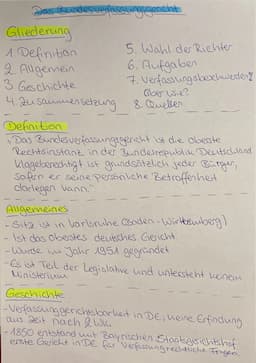 Das Bundesverfassungsgericht
Gliederung
1. Definition
2. Allgemein
3. Geschichte
4. Zusammensetzung
5. Wahl der Richter
6. Aufgaben
7. Verfassungsbeschwerden?
aber wie?
8. Quellen
Definition
"Das Bundesverfassungsgericht ist die oberste
Rechtsinstanz in der Bundesrepublik Deutschland
Klageberechtigt ist grundsätzlich jeder Bürger,
sofern er seine persönliche Betroffenheit
darlegen kann."
Allgemeines
- Sitz ist in Karlsruhe (Baden-Württemberg)
- Ist das oberstes deutsches Gericht
- Wurde im Jahr 1951 gegründet
- Es ist Teil der Legislative und untersteht keinem
Ministerium
Geschichte
- Verfassungsgerichtsbarkeit in DE, keine Erfindung
aus Zeit nach 2 WK.
- 1850 entstand mit Bayrischen Staatsgerichtshof
erste Gericht in DE für verfassungsrechtliche Fragen